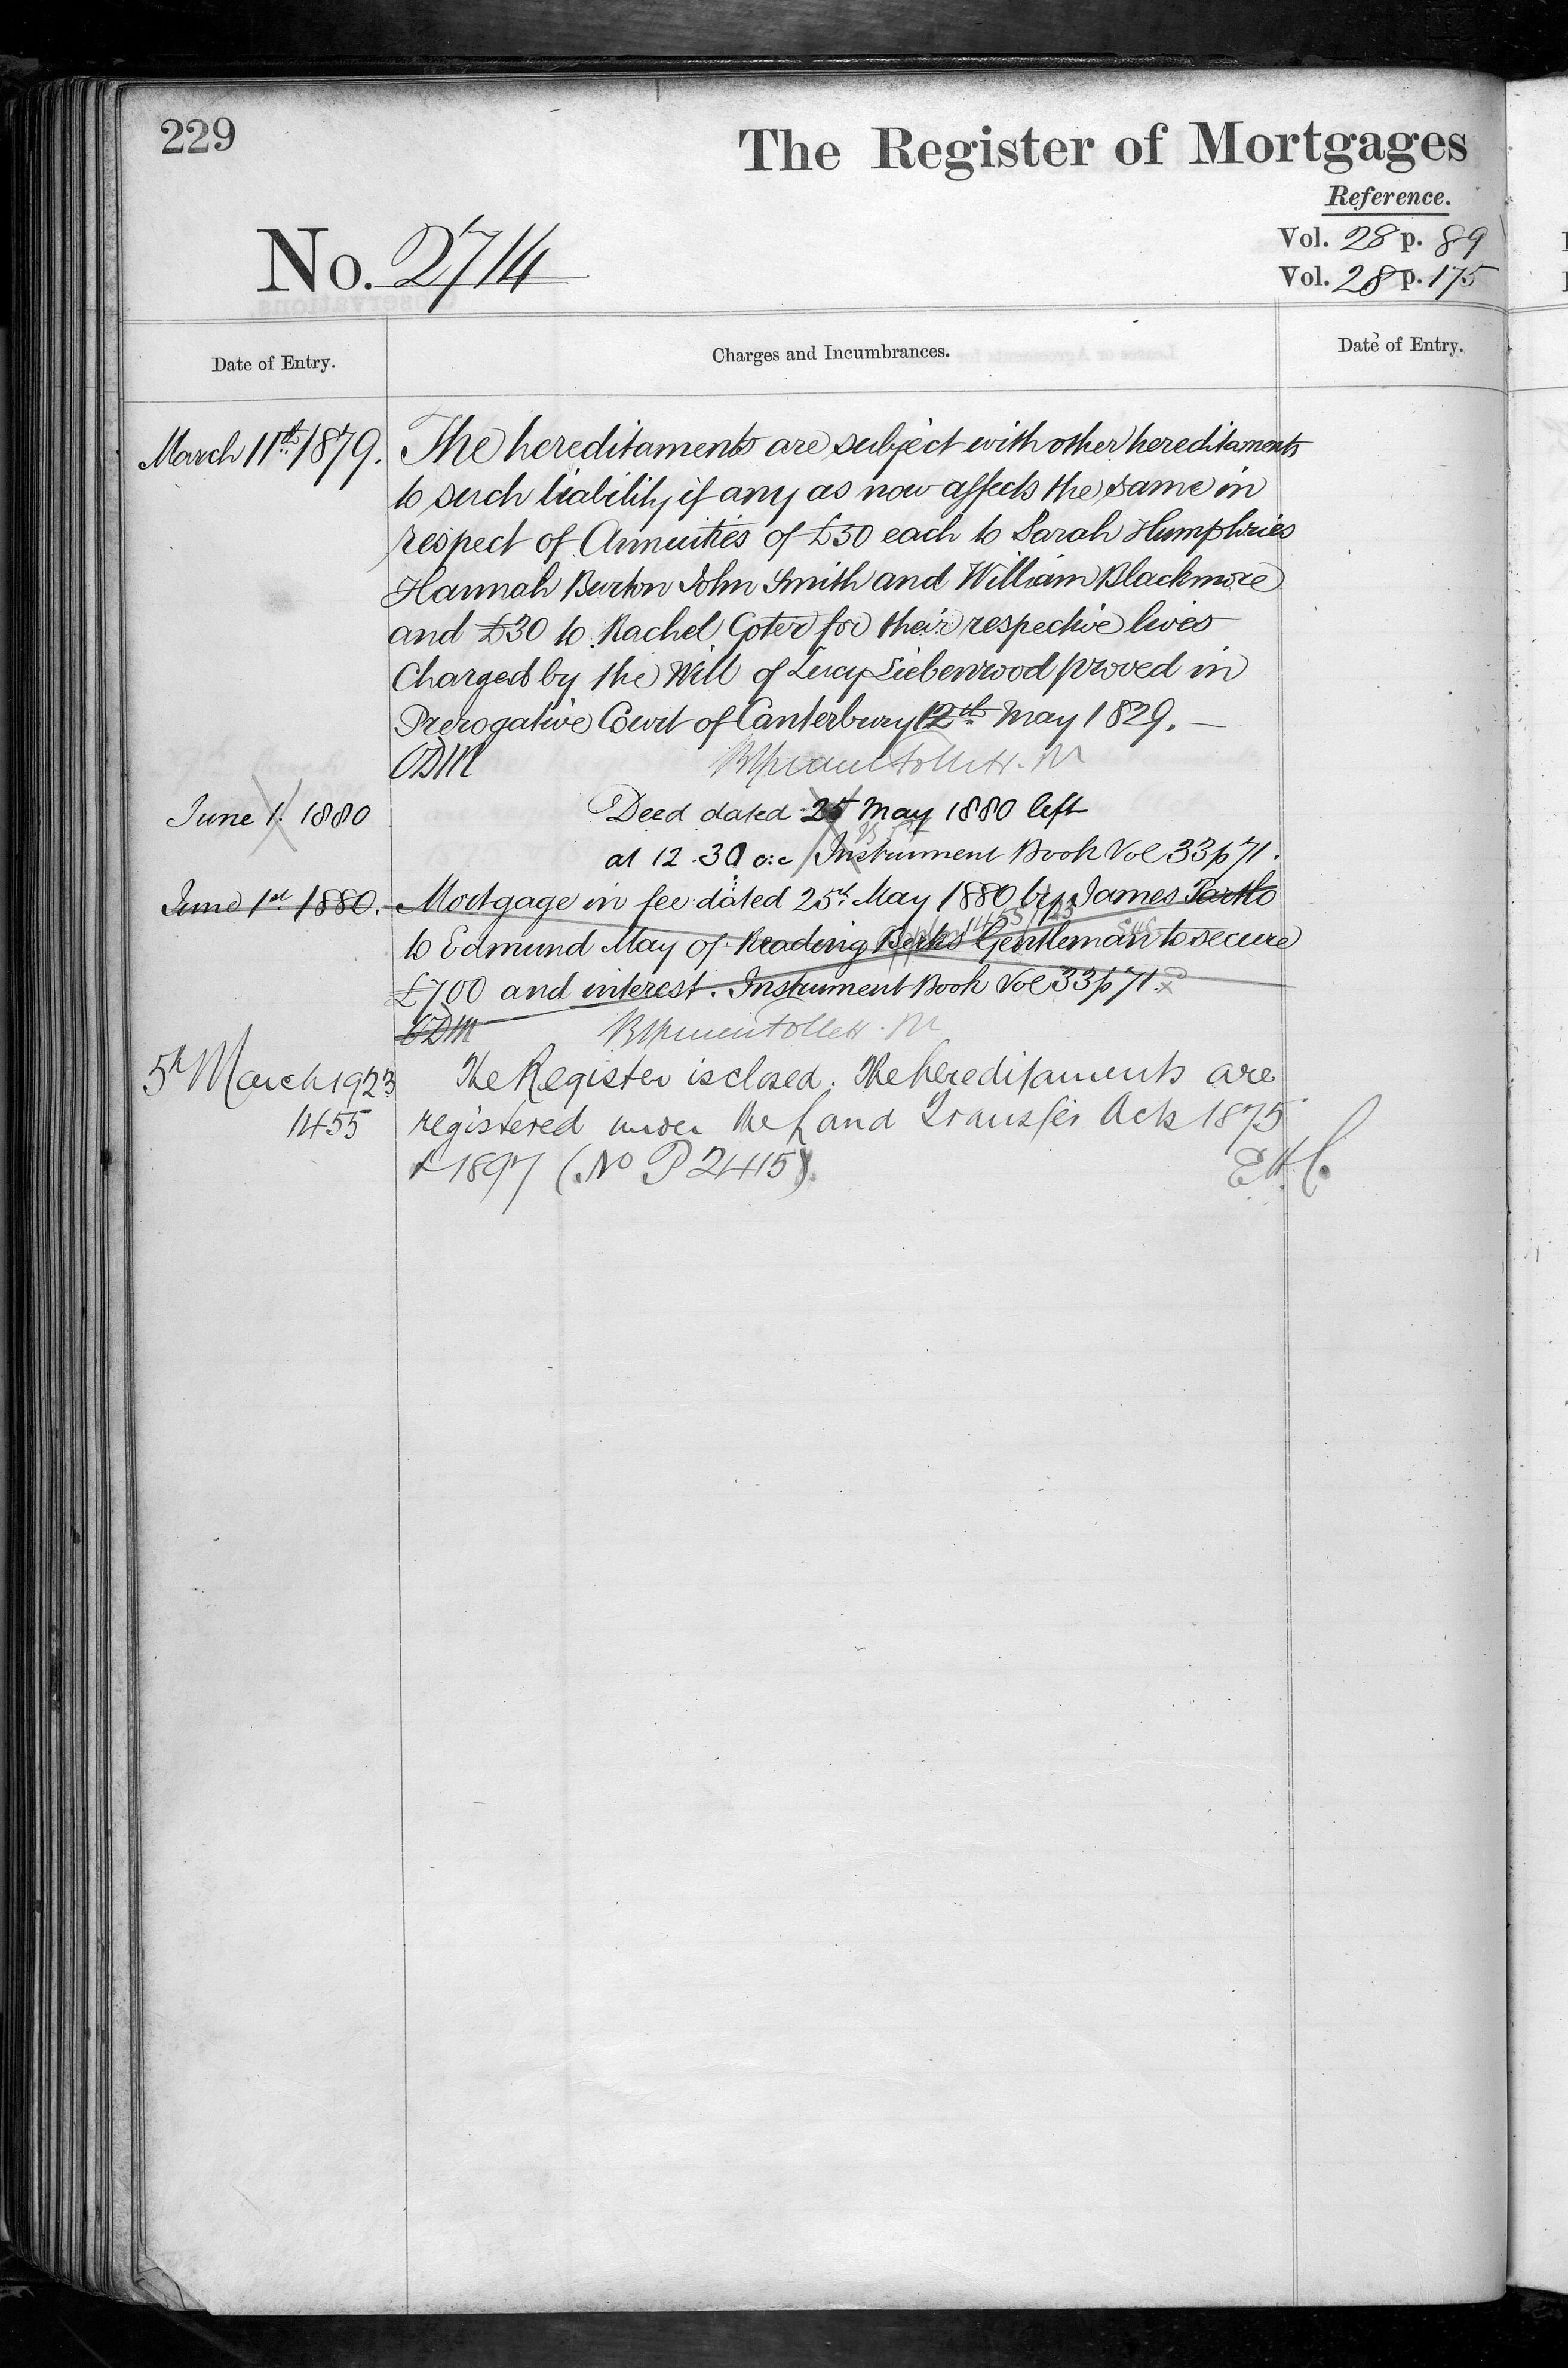 229
The Register of Mortgages
Reference.
No. 2714
Vol. 28 p. 89
Vol. 28 p. 175
Date of Entry.
Charges and Incumbrances.
Date of Entry.
March 11th 1879.
The hereditaments are subject with other hereditaments
to such liability if any as now affects the same in
respect of Annuities of £50 each to Sarah Humphries
Hannah Burton John Smith and William Blackmore
and £30 to Rachel Goter for their respective lives
Charged by the Will of Lucy Liebenrood proved in
Prerogative Court of Canterbury 12th May 1829.
June 1. 1880
Deed dated 25 May 1880 left
at 12.30 o:c Instrument Book Vol 33 p 71.
June 1st 1880.
Mortgage in fee dated 25th May 1880 by James
to Edmund May of Reading Berks Gentleman to secure
£700 and interest. Instrument Book Vol 33 p 71.
5th March 1923
1455
The Register is closed. The hereditaments are
registered under the Land Transfer Acts 1875
& 1897 (No P 2415)